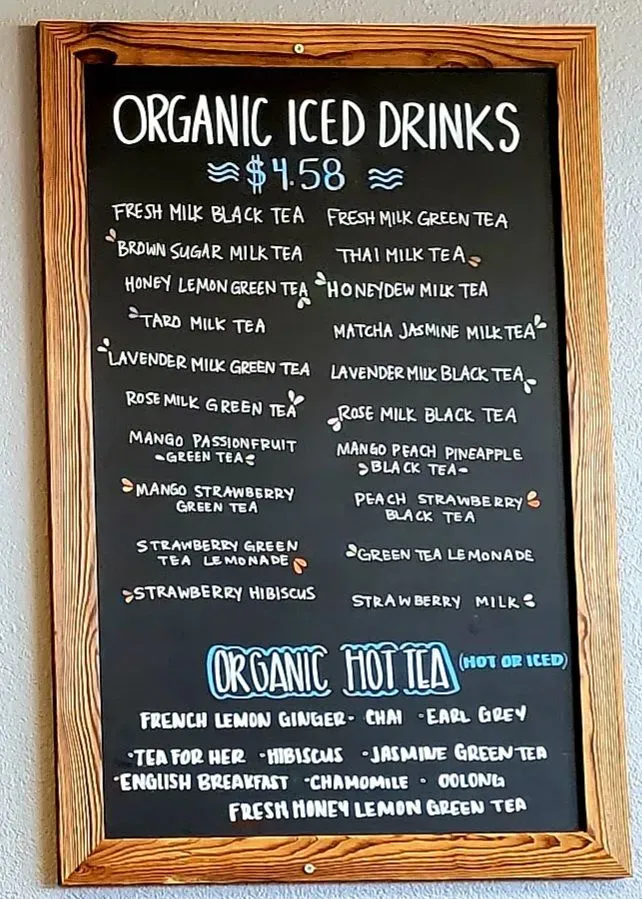 ORGANIC ICED DRINKS
$4.58
FRESH MILK BLACK TEA
FRESH MILK GREEN TEA
BROWN SUGAR MILK TEA
THAI MILK TEA
HONEY LEMON GREEN TEA
HONEYDEW MILK TEA
TARO MILK TEA
MATCHA JASMINE MILK TEA
LAVENDER MILK GREEN TEA
LAVENDER MILK BLACK TEA
ROSE MILK GREEN TEA
ROSE MILK BLACK TEA
MANGO PASSIONFRUIT
GREEN TEA
MANGO PEACH PINEAPPLE
BLACK TEA
MANGO STRAWBERRY
GREEN TEA
PEACH STRAWBERRY
BLACK TEA
STRAWBERRY GREEN
TEA LEMONADE
GREEN TEA LEMONADE
STRAWBERRY HIBISCUS
STRAWBERRY MILK
ORGANIC HOT TEA (HOT OR ICED)
FRENCH LEMON GINGER · CHAI · EARL GREY
· TEA FOR HER · HIBISCUS · JASMINE GREEN TEA
· ENGLISH BREAKFAST · CHAMOMILE · OOLONG
FRESH HONEY LEMON GREEN TEA